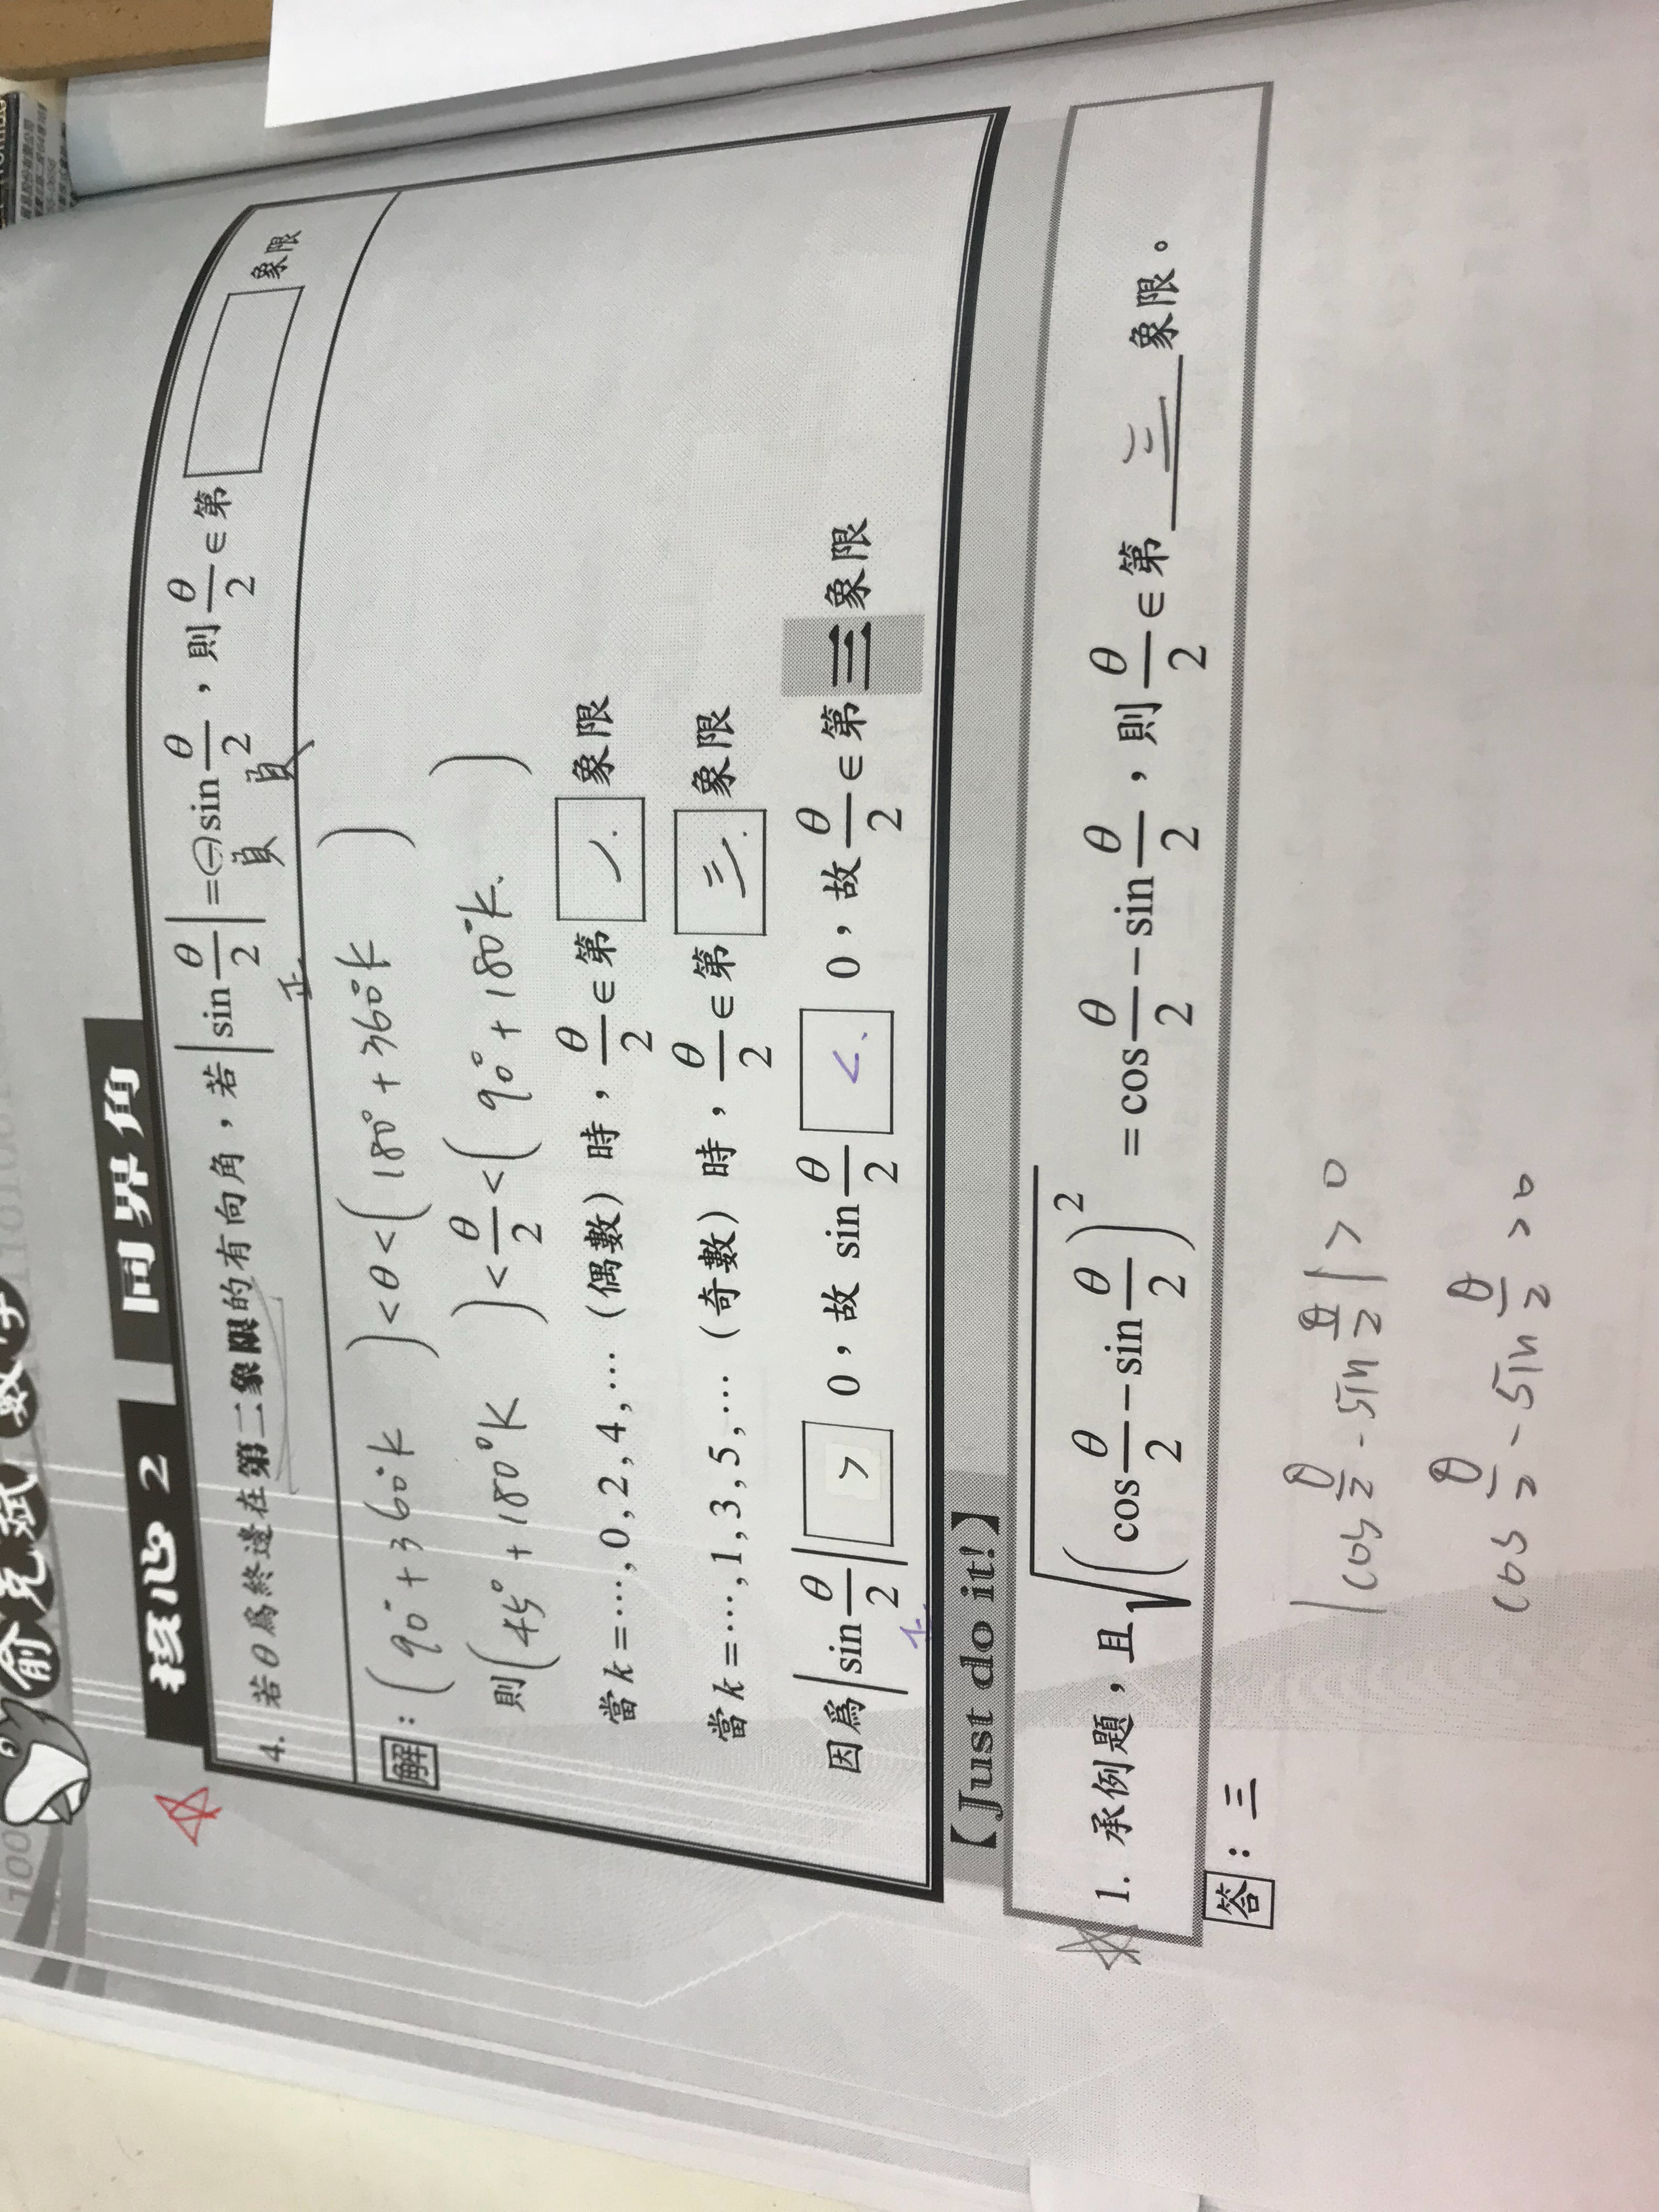 俞克斌 數學
核心 2 同界角
4. 若θ為終邊在第二象限的有向角，若|sin θ/2|=(−)sin θ/2，則 θ/2 ∈第□象限
正 負 負
解：(90°+360°k)<θ<(180°+360°k)
則(45°+180°K)<θ/2<(90°+180°k)
當k=…,0,2,4,…（偶數）時，θ/2∈第一象限
當k=…,1,3,5,…（奇數）時，θ/2∈第三象限
因為|sin θ/2| > 0，故 sin θ/2 < 0，故 θ/2∈第三象限
正
【Just do it!】
1. 承例題，且√(cos θ/2 − sin θ/2)² = cos θ/2 − sin θ/2，則 θ/2∈第三象限。
答：三
|cos θ/2 - sin θ/2| > 0
cos θ/2 - sin θ/2 > 0